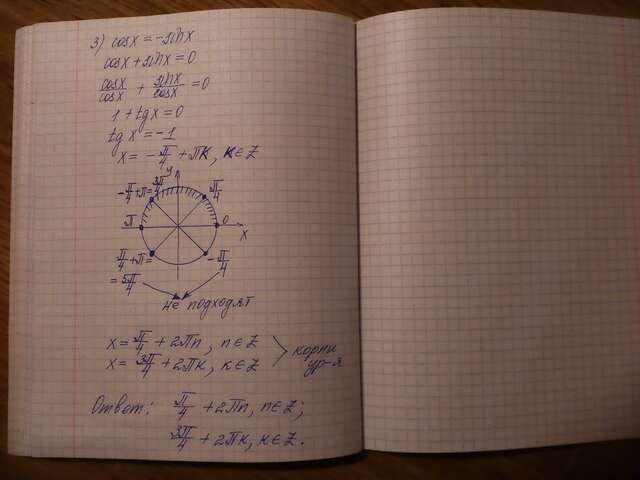 3) cosx = -sinx
cosx + sinx = 0
cosx/cosx + sinx/cosx = 0
1 + tgx = 0
tgx = -1
x = -π/4 + πк, к∈Z
y
-π/4 + π = 3π/4
π/4
π
0
x
π/4 + π =
= 5π/4
-π/4
не подходят
x = π/4 + 2πn, n∈Z
x = 3π/4 + 2πк, к∈Z
корни
ур-я
Ответ: π/4 + 2πn, n∈Z;
3π/4 + 2πк, к∈Z.